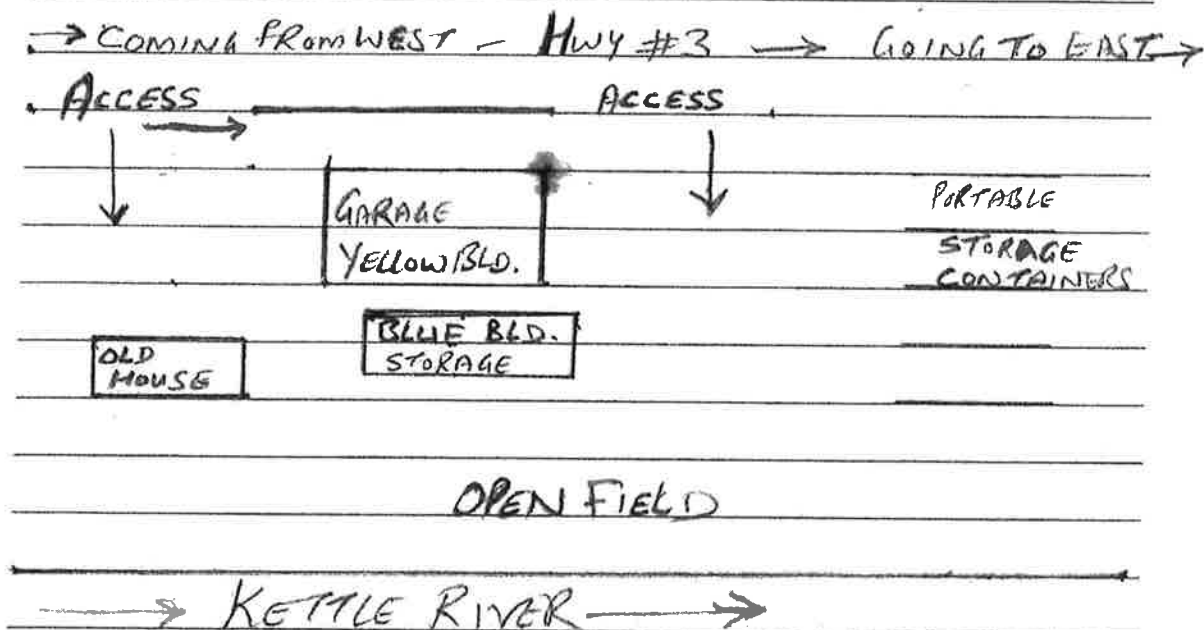 COMING FROM WEST - HWY #3 → GOING TO EAST
ACCESS ACCESS
GARAGE
YELLOW BLD.
PORTABLE
STORAGE
CONTAINERS
BLUE BLD.
STORAGE
OLD
HOUSE
OPEN FIELD
KETTLE RIVER